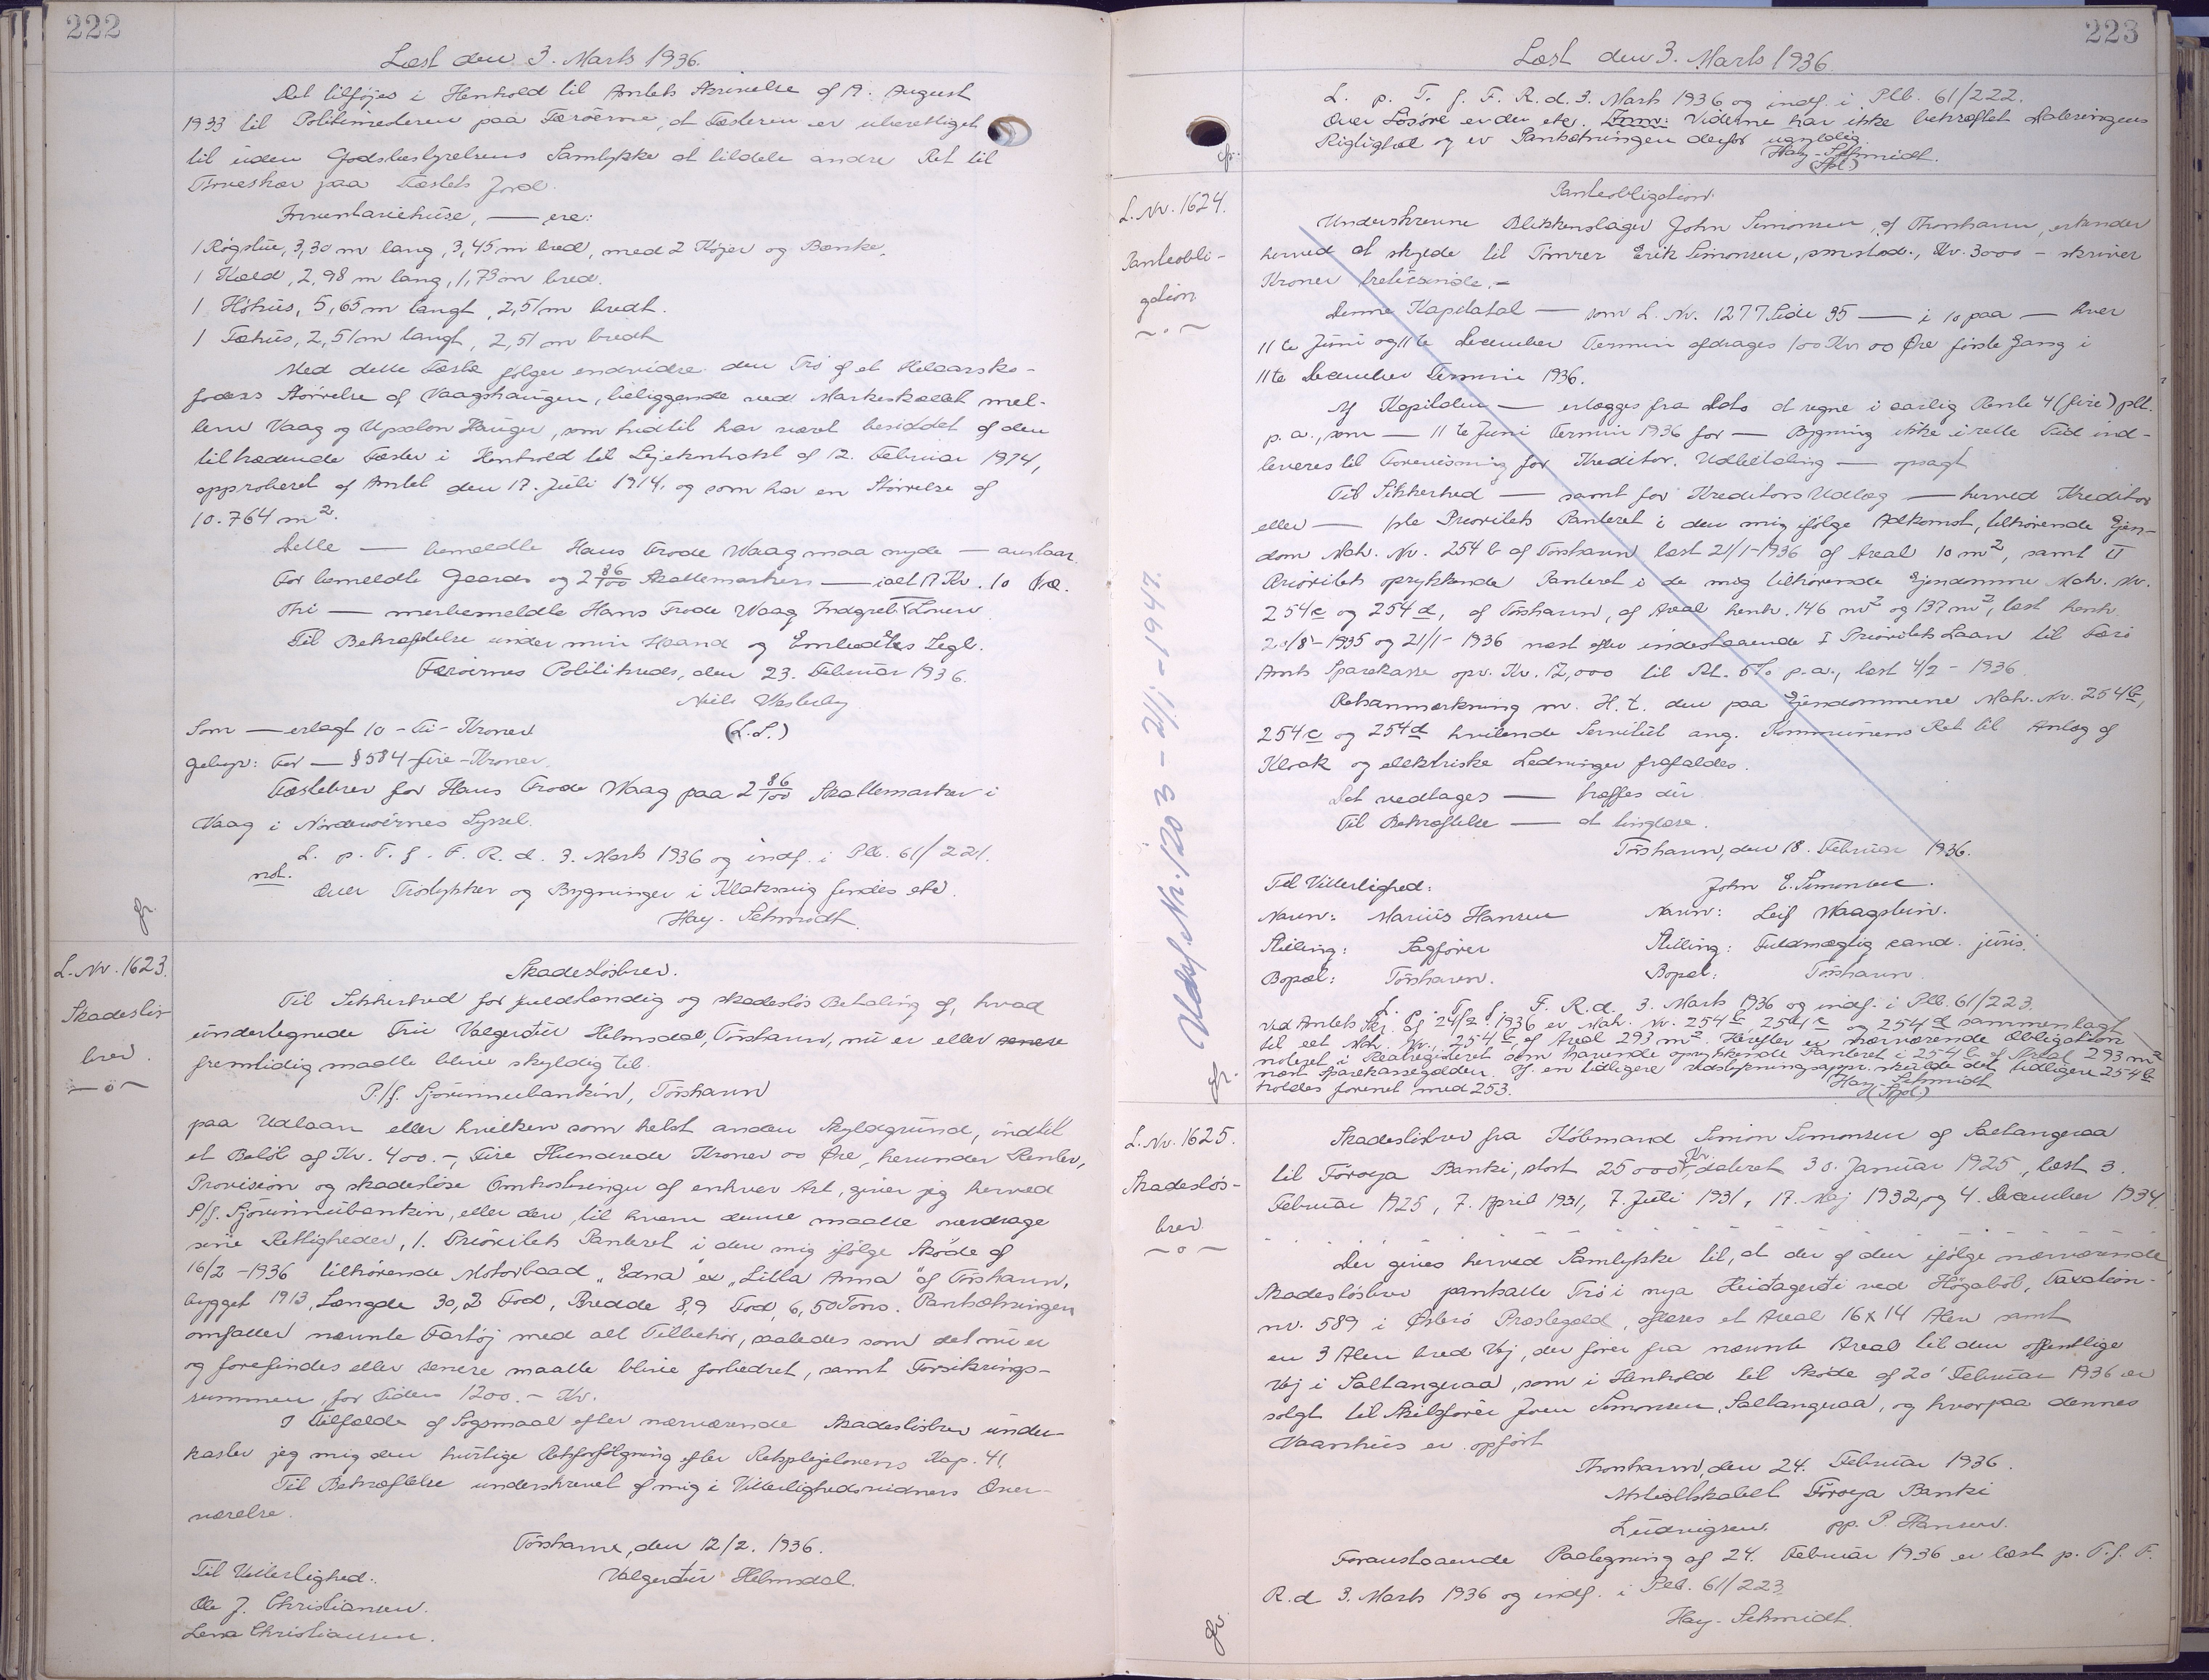 222
Læst den 3. Marts 1936.
Det tilføjes i Henhold til Amtets Skrivelse af 19. August
1933 til Politimesteren paa Færöerne, at Fæsteren er uberettiget
til uden Godsbestyrelsens Samtykke at tildele andre Ret til
Tørveskær paa Fæstets Jord.
Inventariehuse, — ere:
1 Rögstue, 3,30 m lang, 3,45 m bred, med 2 Köjer og Bænke.
1 Kæld, 2,98 m lang, 1,73 m bred.
1 Höhus, 5,65 m langt, 2,51 m bredt.
1 Fæhus, 2,51 m langt, 2,51 m bredt
Med dette Fæste fölger endvidre den Trö af et Helaarsko-
foders Størrelse af Vaagshaugen, beliggende ved Markeskællet mel-
lem Vaag og Upsalon Hauger, som hidtil har været besiddet af den
tiltrædende Fæster i Henhold til Lejekontrakt af 12. Februar 1914,
approberet af Amtet den 17. Juli 1914, og som har en Størrelse af
10.764 m².
Dette — bemeldte Hans Frode Waag maa nyde — anstaar
For bemeldte Gaards og 2 86/100 Skattemarkers — ialt 17 Kr. 10 Øre.
Thi — merbemeldte Hans Frode Waag Indgreb L.nien
Til Bekræftelse under min Haand og Embedets Segl.
Færöernes Politikreds, den 23. Februar 1936.
Niels Vesterby
Som — erlagt 10 - Ti - Kroner (L.S.)
Gebyr: For — § 58 4 - fire - Kroner.
Fæstebrev for Hans Frode Waag paa 2 86/100 Skattemarker i
Vaag i Norderöernes Syssel.
L. p. T. f. F. R. d. 3. Marts 1936 og indf. i Plb. 61/221.
not.
Over Tröstykker og Bygninger i Klaksvig findes etc.
Hay-Schmidt.
L.Nr. 1623.
Skadeslös-
brev.
Skadeslösbrev.
Til Sikkerhed for fuldstændig og skadeslös Betaling af, hvad
undertegnede Frú Valgerður Helmsdal, Tórshavn, nu er eller senere
fremtidig maatte blive skyldig til
P/f. Sjóvinnubankin, Tórshavn
paa Udlaan eller hvilken som helst anden Skyldgrund, indtil
et Beløb af Kr. 400.-, Fire Hundrede Kroner 00 Øre, herunder Renter,
Provision og skadesløse Omkostninger af enhver Art, giver jeg herved
P/f. Sjóvinnubankin, eller den, til hvem denne maatte overdrage
sine Rettigheder, 1. Prioritets Panteret i den mig ifølge Skøde af
16/2-1936 tilhörende Motorbaad "Edna" ex "Lilla Anna" af Tórshavn,
bygget 1913, Længde 30,2 Fod, Bredde 8,9 Fod, 6,50 Tons. Pantsætningen
omfatter nævnte Fartøj med alt Tilbehör, saaledes som det nu er
og forefindes eller senere maatte blive forbedret, samt Forsikrings-
summen, for Tiden 1200.- Kr.
I Tilfælde af Søgsmaal efter nærværende Skadeslösbrev under-
kaster jeg mig den hurtige Retsforfölgning efter Retsplejelovens Kap. 41.
Til Bekræftelse underskrevet af mig i Vitterlighedsvidners Over-
værelse.
Tórshavn, den 12/2. 1936.
Til Vitterlighed: Valgerður Helmsdal.
Ole J. Christiansen.
Lena Christiansen.
223
Læst den 3. Marts 1936.
L. p. T. f. F. R. d. 3. Marts 1936 og indf. i Plb. 61/222.
Over Lösöre ender etc. Anm: Viderne har ikke bekræftet Dateringens
Rigtighed og er Pantsætningen derfor ugyldig
Hay-Schmidt.
(Spl.)
L.Nr. 1624.
Panteobli-
gation
Panteobligation.
Underskrevne Blikkenslager John Simonsen, af Thorshavn, erkender
herved at skylde til Tömrer Erik Simonsen, smstds., Kr. 3000 - skriver
Kroner tretusinde.-
Denne Kapitatal — som L. Nr. 1277 Side 35 — i 10 paa — hver
11te Juni og 11te December Termin afdrages 100 Kr 00 Øre første Gang i
11te December Termin 1936.
Af Kapitalen — erlægges fra Dato at regne i aarlig Rente 4 (fire) pCt.
p.a., som — 11te Juni Termin 1936 for — Bygning ikke i rette Tid ind-
leveres til Forevisning for Kreditor. Udbetaling — opsagt
Til Sikkerhed — samt for Kreditors Udlæg — herved Kreditor
eller — 1ste Prioritets Panteret i den mig ifølge Adkomst, tilhørende Ejen-
dom Matr. Nr. 254 b af Tórshavn læst 21/1-1936 af Areal 10 m², samt II
Prioritets oprykkende Panteret i de mig tilhørende Ejendomme Matr. Nr.
254 c og 254 d, af Tórshavn, af Areal henh. 146 m² og 137 m², læst henh.
20/8-1935 og 21/1-1936 næst efter indestaaende I Prioritets Laan til Færö
Amts Sparekasse opr. Kr. 12,000 til Rt. 5% p.a., læst 4/2-1936
Retsanmærkning m. H. t. den paa Ejendommene Matr. Nr. 254 b,
254 c og 254 d hvilende Servitut ang. Kommunens Ret til Anlæg af
Kloak og elektriske Ledninger frafaldes.
Det vedtages — træffes där
Til Bekræftelse — at tinglæse.
Tórshavn, den 18. Februar 1936.
Til Vitterlighed: John E. Simonsen.
Navn: Marius Hansen Navn: Leif Waagstein.
Stilling: Sagfører Stilling: Fuldmægtig cand. juris.
Bopæl: Tórshavn. Bopæl: Tórshavn.
L. p. T. f. F. R. d. 3. Marts 1936 og indf. i Plb. 61/223.
Ved Amtets Skr. af 24/2 1936 er Matr. Nr. 254 b, 254 c og 254 d sammenlagt
til eet Matr. Nr., 254 b, af Areal 293 m². Herefter er nærværende Obligation
noteret i Realregistret som havende oprykkende Panteret i 254 b af Areal 293 m²
næst Sparekassegælden. Jf. en tidligere Udstykningsappr. skulde det tidligere 254 b
holdes forenet med 253.
Hay-Schmidt
(Spl.)
Udsl. Nr. 1203 - 21/1-1947.
L.Nr. 1625.
Skadeslös-
brev
Skadeslösbrev fra Köbmand Simon Simonsen af Saltangeraa
til Föroya Banki, stort 25000 Kr., dateret 30. Januar 1925, læst 3.
Februar 1925, 7. April 1931, 7. Juli 1931, 17. Maj 1932, og 4. December 1934.
Der gives herved Samtykke til, at der af den ifölge nærværende
Skadeslösbrev pantsatte Trö i nya Heiðagerði ved Högaból, Taxation-
nr. 589 i Østerö Præstegæld, aflæses et Areal 16 x 14 Alen samt
en 3 Alen bred Vej, der fører fra nævnte Areal til den offentlige
Vej i Saltangeraa, som i Henhold til Skøde af 20' Februar 1936 er
solgt til Skibsfører Joen Simonsen, Saltangeraa, og hvorpaa dennes
Vaanhus er opført
Thorshavn, den 24. Februar 1936.
Aktieselskabet Föroya Banki
Ludvigsen. pp. P. Hansen.
Foranstaaende Paategning af 24. Februar 1936 er læst p. T. f. F.
R. d. 3. Marts 1936 og indf. i Plb. 61/223.
Hay-Schmidt.